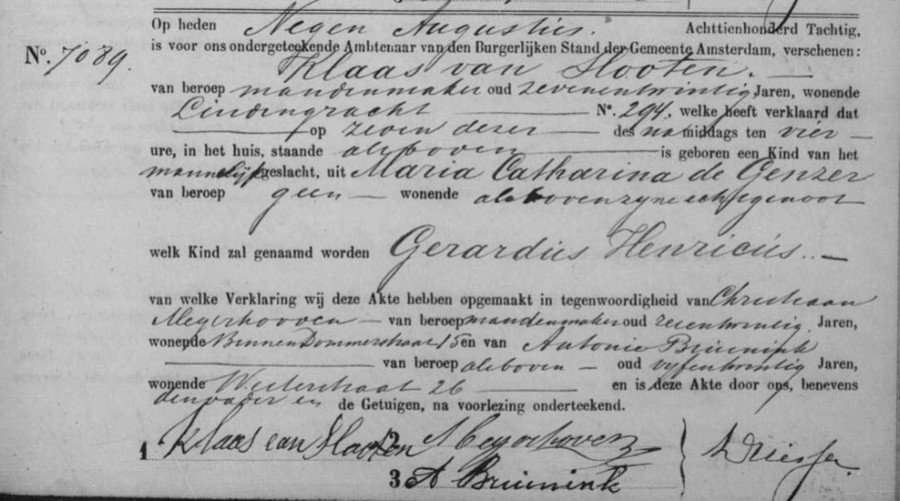 Op heden Negen Augustus. Achttienhonderd Tachtig,
No. 7089. is voor ons ondergeteekende Ambtenaar van den Burgerlijken Stand der Gemeente Amsterdam, verschenen:
Klaas van Slooten.
van beroep mandenmaker oud zevenentwintig Jaren, wonende
Lindengracht No. 294, welke heeft verklaard dat
op zeven deser des namiddags ten vier
ure, in het huis, staande alsboven is geboren een Kind van het
mannelijk geslacht, uit Maria Catharina de Genzer
van beroep geen wonende alsboven zyne echtgenoot
welk Kind zal genaamd worden Gerardus Henricus.
van welke Verklaring wij deze Akte hebben opgemaakt in tegenwoordigheid van Christiaan
Meyerhoven van beroep mandenmaker oud zesentwintig Jaren,
wonende Binnen Dommerstraat 15 en van Antonie Bruinink
van beroep alsboven oud vyfentwintig Jaren,
wonende Westerstraat 26 en is deze Akte door ons, benevens
den vader en de Getuigen, na voorlezing onderteekend.
1 Klaas van Slooten 2 Meyerhoven
3 A Bruinink